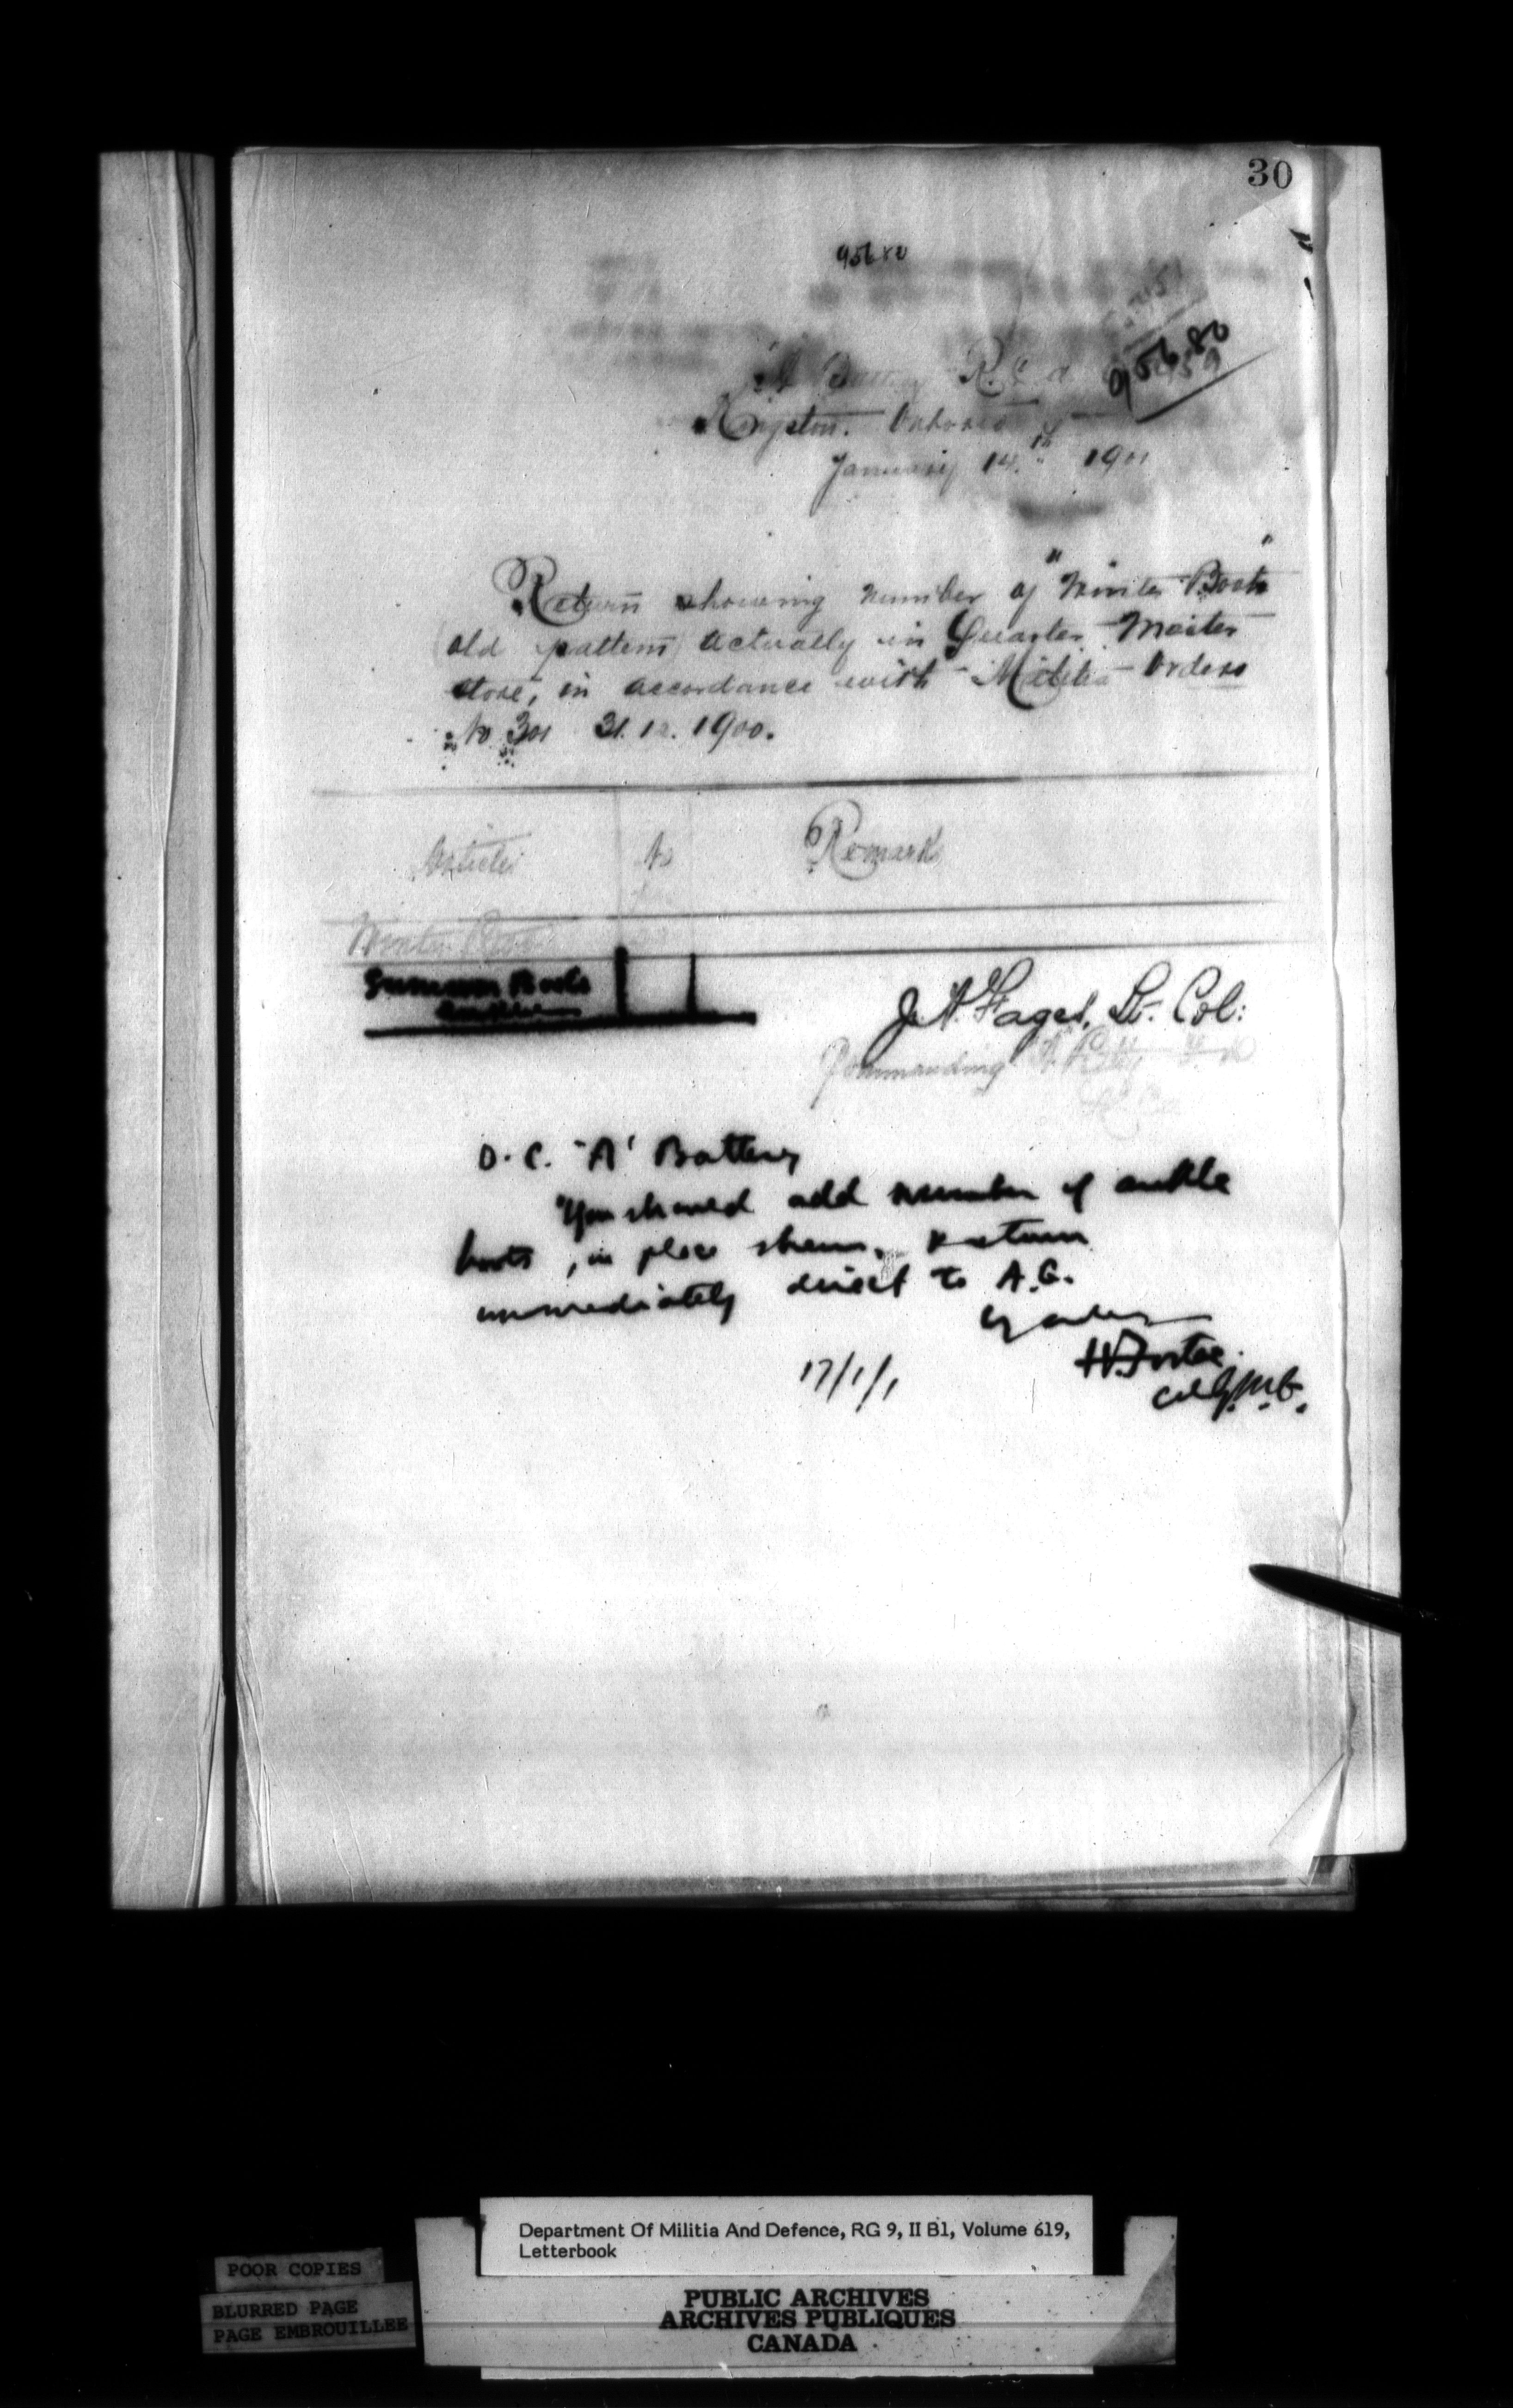 30
95680
95680
"A" Battery R.C.A
Kingston. Ontario
January 14th 1901
Return showing number of "Winter Boots"
(old pattern) actually in Quarter Master
store, in accordance with Militia Orders
No 301 31.12.1900.
Article No Remark
Winter Boots
Boots
Lt. Col:
Commanding "A"
O.C. "A" Battery
You should add number of ankle
boots, in place shewn. Return
immediately direct to A.G.
By order
17/1/1
Department Of Militia And Defence, RG 9, II B1, Volume 619,
Letterbook
POOR COPIES
BLURRED PAGE
PAGE EMBROUILLEE
PUBLIC ARCHIVES
ARCHIVES PUBLIQUES
CANADA